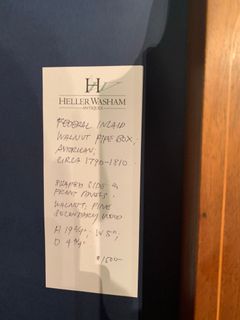 H
HELLER WASHAM
ANTIQUES
FEDERAL INLAID
WALNUT PIPE BOX,
AMERICAN,
CIRCA 1790-1810.
SIDE &
FRONT PANELS.
WALNUT, PINE
SECONDARY WOOD
H 19 3/4", W 5",
D 4 3/4"